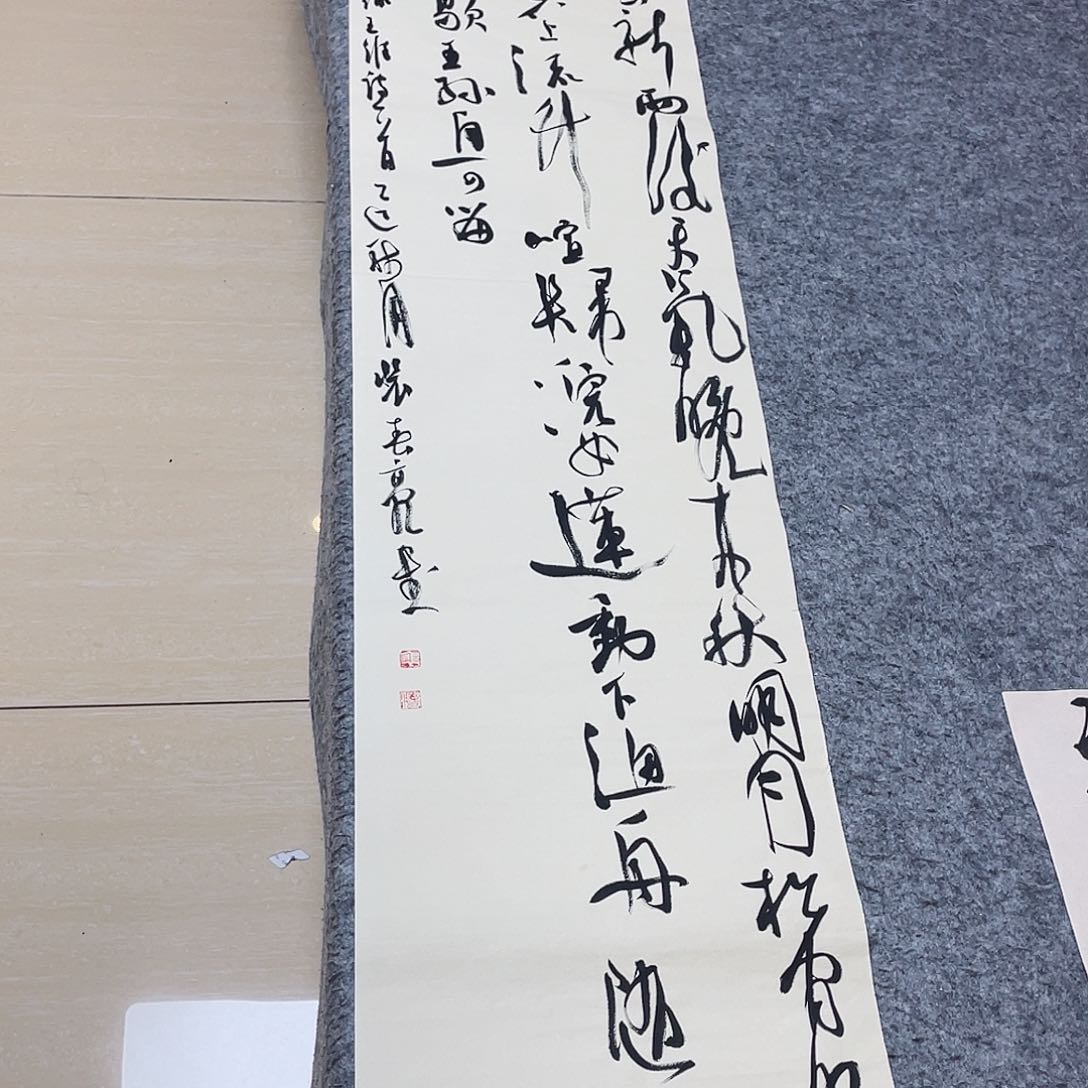 新雨後天氣晚來秋明月松間
上流竹喧歸浣女蓮動下漁舟隨
歇王孫自可留
王維詩一首乙巳月春亮書